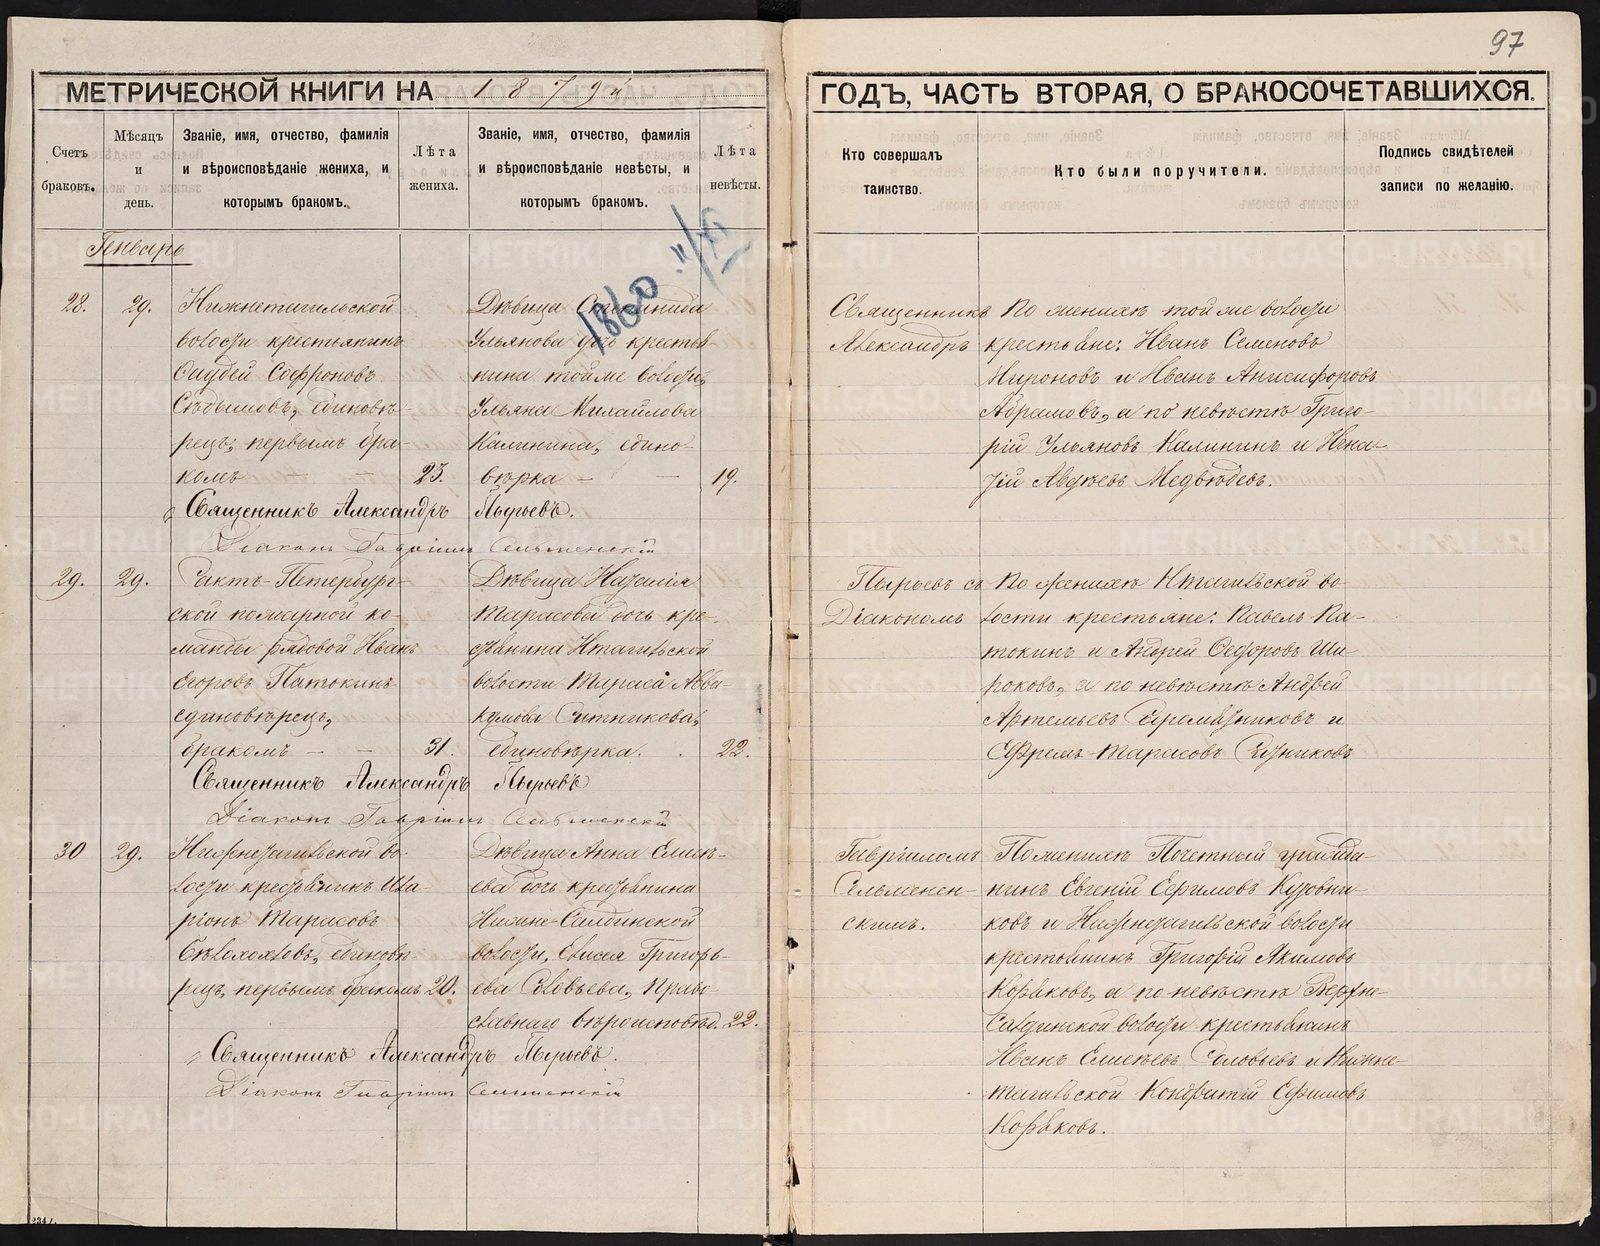 97
МЕТРИЧЕСКОЙ КНИГИ НА 1879й
ГОДЪ, ЧАСТЬ ВТОРАЯ, О БРАКОСОЧЕТАВШИХСЯ.
Счетъ браковъ.
Мѣсяцъ и день.
Званіе, имя, отчество, фамилія и вѣроисповѣданіе жениха, и которымъ бракомъ.
Лѣта жениха.
Званіе, имя, отчество, фамилія и вѣроисповѣданіе невѣсты, и которымъ бракомъ.
Лѣта невѣсты.
Кто совершалъ таинство.
Кто были поручители.
Подпись свидѣтелей записи по желанію.
Генварь
1860
28.
29.
Нижнетагильской
волости крестьянинъ
Софроновъ
единовѣ-
рецъ, первымъ бра-
комъ
23.
Дѣвица Степанида
Ульянова дочь крестья-
нина тойже волости,
Ульяна Михайлова
Калинина, едино-
вѣрка
19.
Священникъ
Александръ
По женихѣ той же волости
крестьяне: Иванъ Семеновъ
Мироновъ и Иванъ Анисифоровъ
Абрамовъ, а по невѣстѣ Григо-
рій Ульяновъ Калининъ и
Авдѣевъ Медвѣдевъ.
Священникъ Александръ Пырьевъ.
Діаконъ Гавріилъ Сельменскій
29.
29.
Санктъ-Петербург-
ской пожарной ко-
манды рядовой Иванъ
Егоровъ Патокинъ
единовѣрецъ,
бракомъ
31.
Дѣвица Наталія
Тарасова дочь кре-
стьянина Нтагильской
волости Тараса Авва-
кумова Ситникова,
единовѣрка.
22.
Пырьевъ съ
Діакономъ
По женихѣ Нтагильской во-
лости крестьяне: Павелъ Па-
токинъ и Андрей Ѳедоровъ Ши-
роковъ, а по невѣстѣ Андрей
Артемьевъ и
Ефремъ Тарасовъ
Священникъ Александръ Пырьевъ
Діаконъ Гавріилъ Сельменскій
30
29.
Нижнетагильской во-
лости крестьянинъ Ила-
ріонъ Тарасовъ
Бѣлохохловъ, единовѣ
рецъ, первымъ бракомъ
20.
Дѣвица Анна Елисѣ-
ева дочь крестьянина
Нижне-Салдинской
волости, Елисея Григорь-
ева Соловьева, право-
славнаго вѣроисповѣд.
22.
Гавріиломъ
Сельменен-
скимъ.
По женихѣ Почетный гражда-
нинъ Евгеній Ефимовъ Кузовни-
ковъ и Нижнетагильской волости
крестьянинъ Григорій Акимовъ
Коряковъ, а по невѣстѣ Верхне-
Салдинской волости крестьянинъ
Иванъ Елисѣевъ Соловьевъ и Нижне-
тагильской Кондратій Ефимовъ
Коряковъ.
Священникъ Александръ Пырьевъ.
Діаконъ Гавріилъ Сельменскій
METRIKI.GASO-URAL.RU